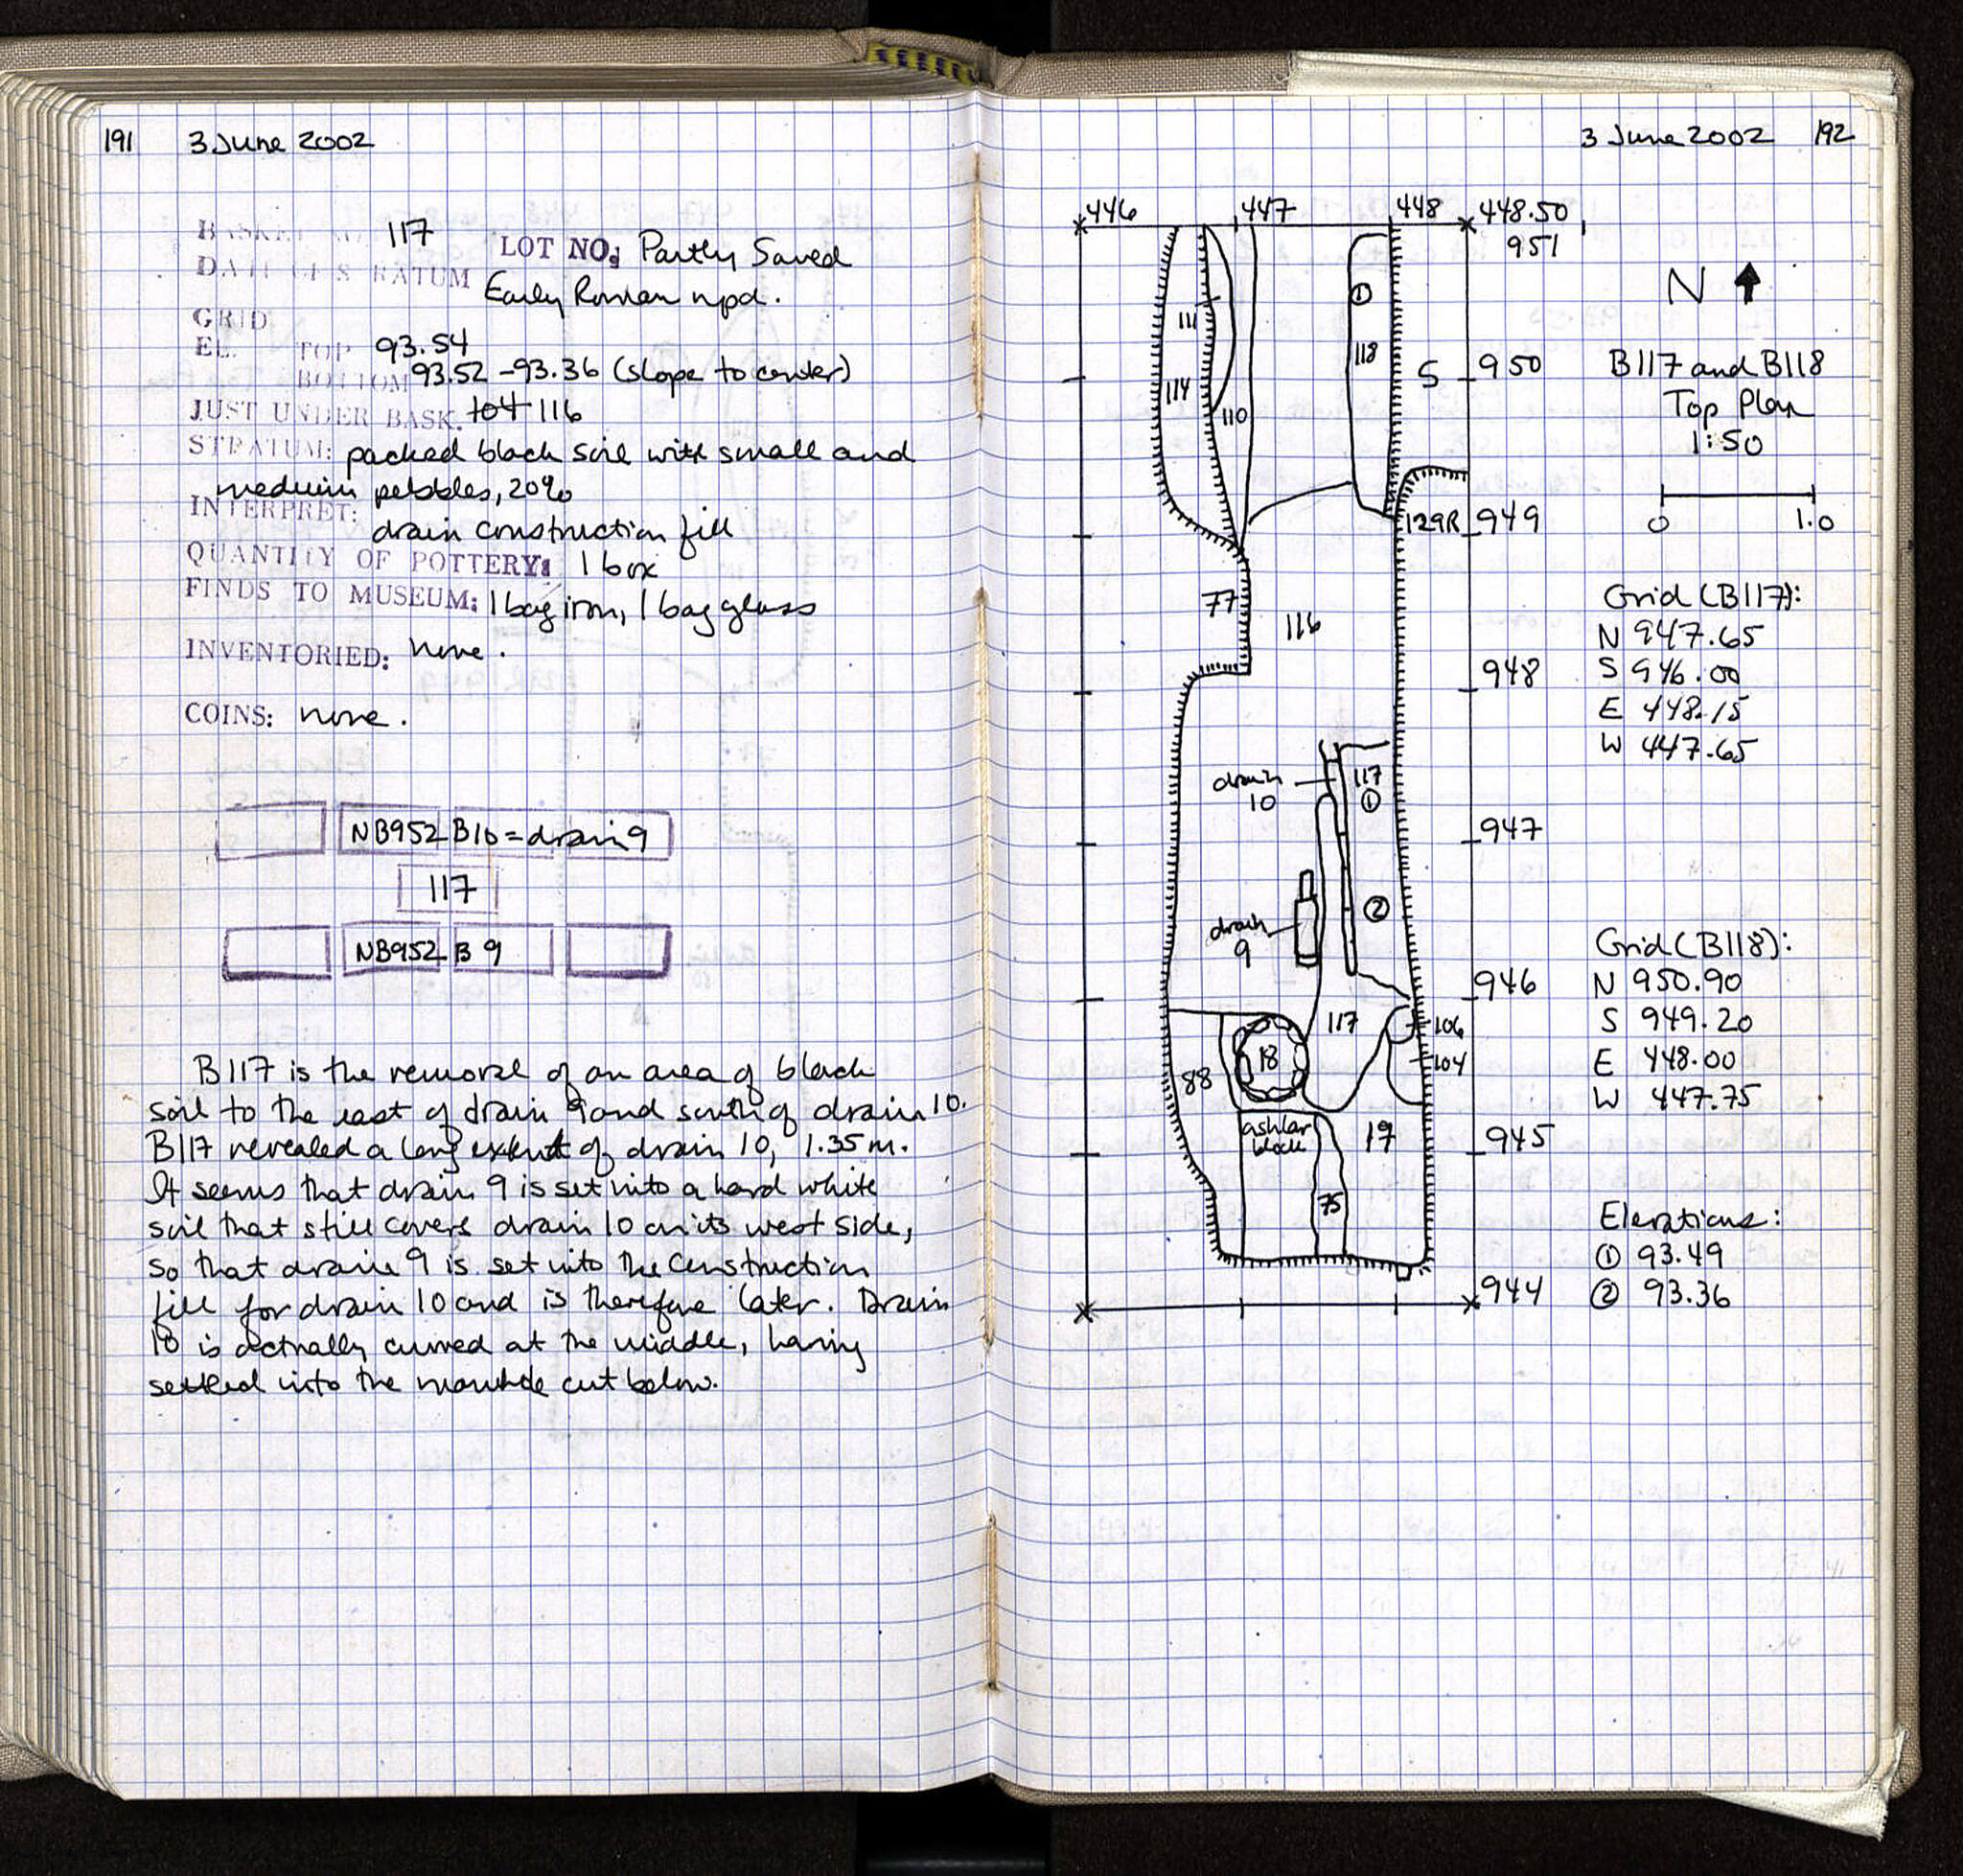 191 3 June 2002
BASKET NO. 117 LOT NO: Partly Saved
DATE OF STRATUM Early Roman npd.
GRID
EL. TOP 93.54
BOTTOM 93.52 - 93.36 (slope to center)
JUST UNDER BASK. 104 116
STRATUM: packed black soil with small and
medium pebbles, 20%
INTERPRET: drain construction fill
QUANTITY OF POTTERY: 1 box
FINDS TO MUSEUM: 1 bag iron, 1 bag glass
INVENTORIED: none.
COINS: none.
NB952 B10 = drain 9
117
NB952 B 9
B117 is the removal of an area of black
soil to the east of drain 9 and south of drain 10.
B117 revealed a long extent of drain 10, 1.35 m.
It seems that drain 9 is set into a hard white
soil that still covers drain 10 on its west side,
so that drain 9 is set into the construction
fill for drain 10 and is therefore later. Drain
10 is actually curved at the middle, having
settled into the manhole cut below.
3 June 2002 192
446 447 448 448.50
951
N
111
1
118
S
950
114
110
B117 and B118
Top Plan
1:50
129R
949
0 1.0
77
116
Grid (B117):
N 947.65
S 946.00
E 448.15
W 447.65
948
drain
10
117
1
947
drain
9
2
946
Grid (B118):
N 950.90
S 949.20
E 448.00
W 447.75
117
106
18
104
88
ashlar
block
19
945
75
944
Elevations:
1 93.49
2 93.36